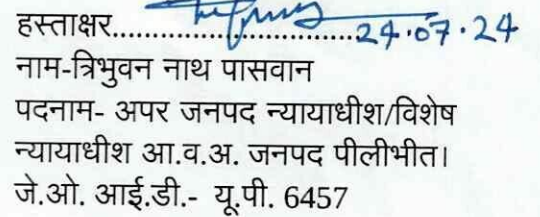 हस्ताक्षर..................................24.07.24
नाम-त्रिभुवन नाथ पासवान
पदनाम- अपर जनपद न्यायाधीश/विशेष
न्यायाधीश आ.व.अ. जनपद पीलीभीत।
जे.ओ. आई.डी.- यू.पी. 6457